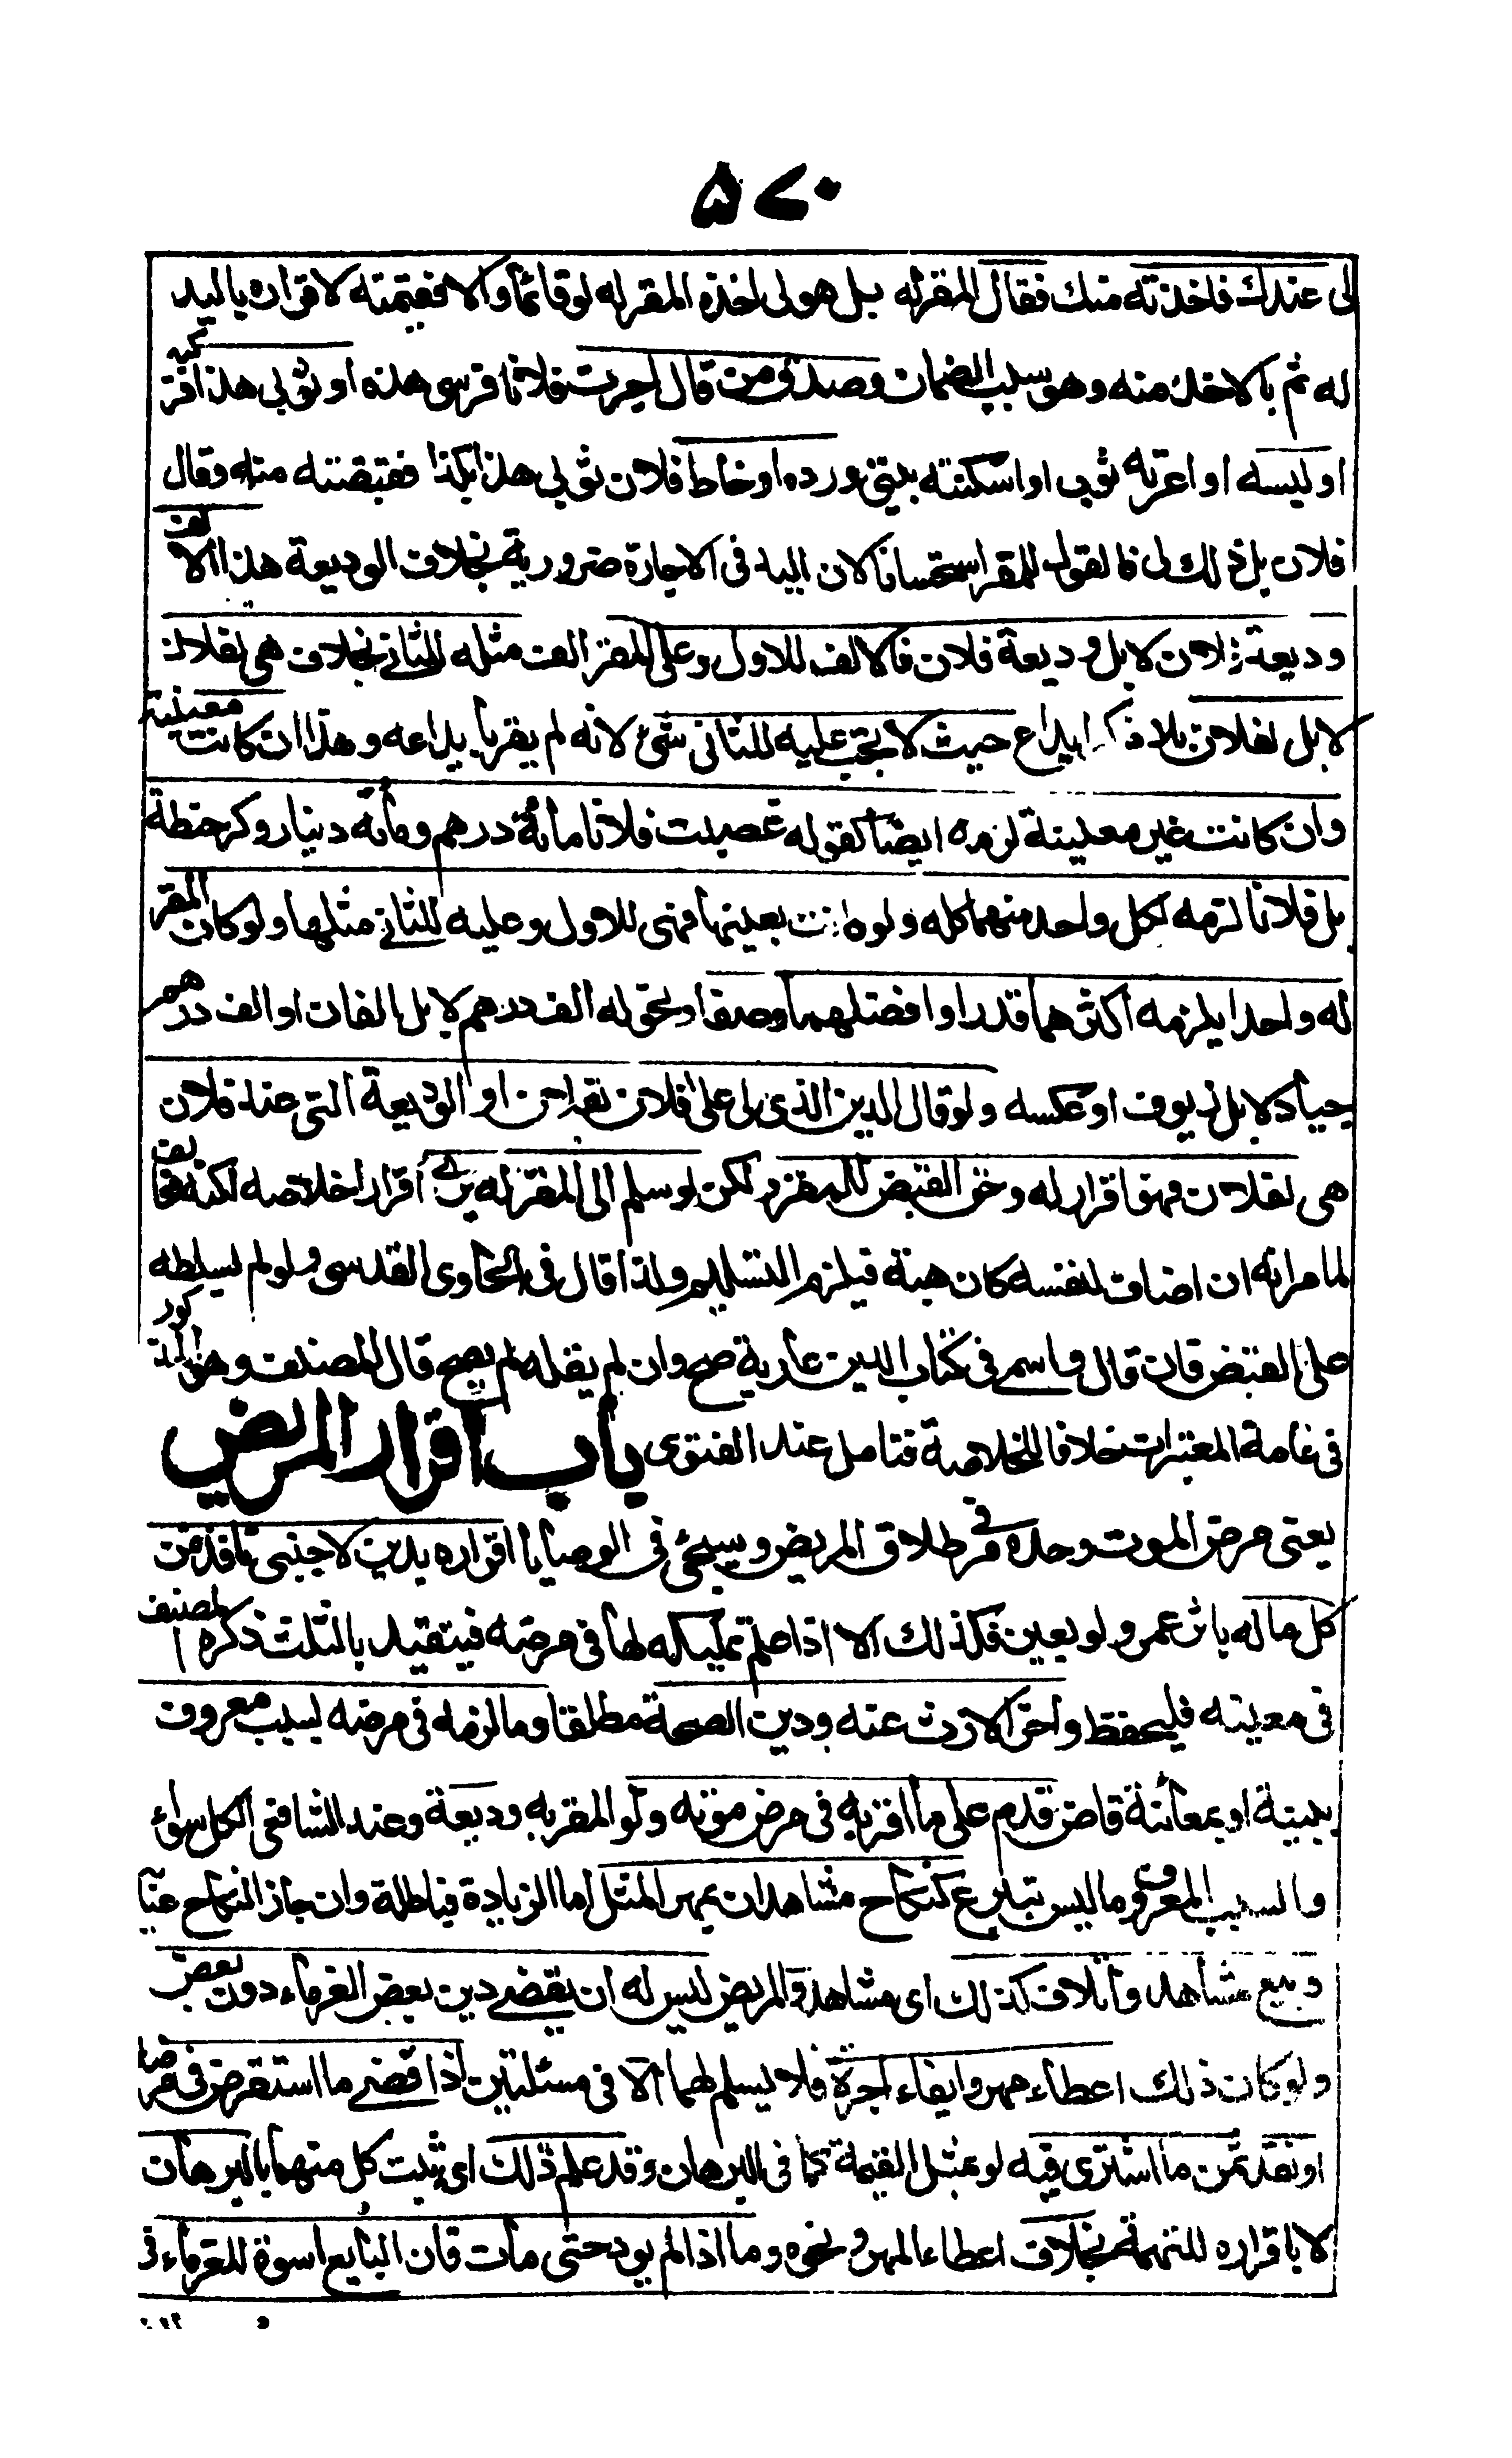 ۵۷۰
لی عندك فاخذته منك فقال المقر له بل هو لی اخذه المقر له لو قائما والا فقیمته لاقراره بالید
له ثم بالاخذ منه وهو سبب الضمان وصدق من قال اجرت فلانا فرسی هذه او ثوبی هذا فركبه
او لبسه او اعرته ثوبی او اسکنته بیتی ورده او خاط فلان ثوبی هذا بکذا فقبضته منه وقال
فلان بل ذلك لی فالقول للمقر استحسانا لان الید فی الاجارة ضروریة بخلاف الودیعة هذا الالف
ودیعة فلان لا بل ودیعة فلان فالالف للاول وعلی المقر الف مثله للثانی بخلاف هی لفلان
لا بل لفلان بلا ذکر ایداع حیث لا یجب علیه للثانی شئ لانه لم یقر بایداعه وهذا ان کانت معینة
وان کانت غیر معینة لزمه ایضا کقوله غصبت فلانا مائة درهم ومائة دینار وکر حنطة
بل فلانا لزمه لکل واحد منهما کله ولو کانت بعینها فهی للاول وعلیه للثانی مثلها ولو کان المقر
له واحدا یلزمه اکثرهما قدرا او افضلهما وصفا نحو له الف درهم لا بل الفان او الف درهم
جیاد لا بل زیوف او عکسه ولو قال الدین الذی لی علی فلان لفلان او الودیعة التی عند فلان
هی لفلان فهو اقرار له وحق القبض للمقر ولکن لو سلم الی المقر له برئ اقرارا خلاصه لکنه مخالف
لما مر انه ان اضاف لنفسه کان هبة فیلزم التسلیم ولذا قال فی الحاوی القدسی ولو لم یسلطه
علی القبض فان قال واسمی فی کتاب الدین عاریة صح وان لم یقله لم یصح قال المصنف وهو المذکور
فی عامة المعتبرات خلافا للخلاصة فتامل عند الفتوی باب اقرار المریض
یعنی مرض الموت وحده مر فی طلاق المریض وسیجئ فی الوصایا اقراره بدین لاجنبی نافذ من
کل ماله باثر عمر ولو بعین فکذلك الا اذا علم تملیکه لها فی مرضه فیتقید بالثلث ذکره المصنف
فی معینه فلیحفظ واخر الارث عنه ودین الصحة مطلقا وما لزمه فی مرضه بسبب معروف
ببینة او بمعاینة قاض قدم علی ما اقر به فی مرض موته ولو المقر به ودیعة وعند الشافعی الکل سواء
والسبب المعروف ما لیس بتبرع کنکاح مشاهد ان بمهر المثل اما الزیادة فباطلة وان جاز النکاح عنایة
وبیع مشاهد واتلاف کذلك ای مشاهد والمریض لیس له ان یقضی دین بعض الغرماء دون بعض
ولو کان ذلك اعطاء مهر وایفاء اجرة فلا یسلم لهما الا فی مسئلتین اذا قضی ما استقرض فی مرضه
او نقد ثمن ما اشتری فیه لو بمثل القیمة کما فی البرهان وقد علم ذلك ای ثبت کل منهما بالبرهان
لا باقراره للتهمة بخلاف اعطاء المهر ونحوه وما اذا لم یود حتی مات فان البایع اسوة للغرماء فی